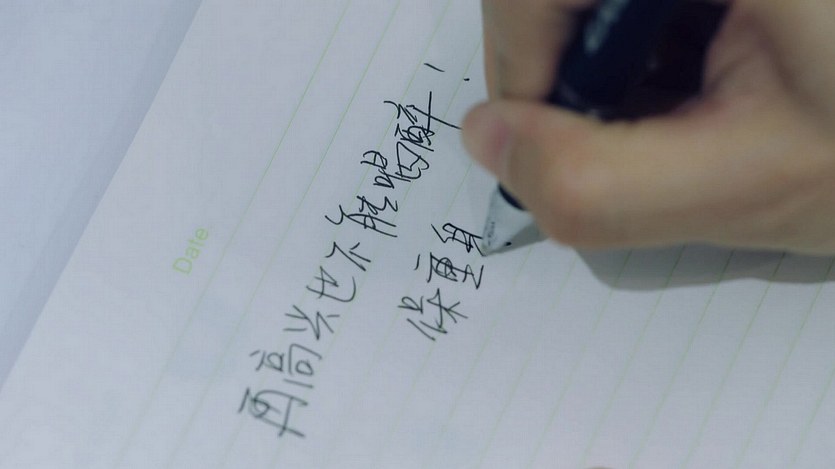 Date
再高兴也不能喝醉！
保重身